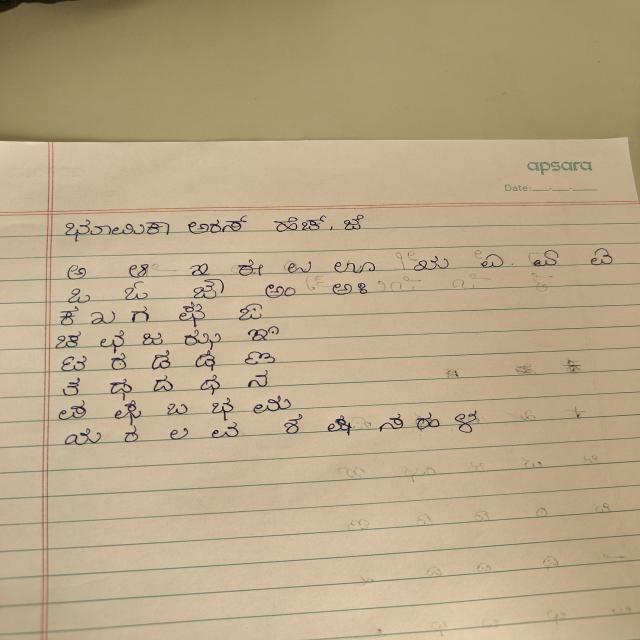 apsara
Date:
ಭೂಮಿಕಾ ಅರಸ್ ಹೆಚ್. ಜೆ
ಅ ಆ ಇ ಈ ಉ ಊ ಋ ಎ ಏ ಐ
ಒ ಓ ಔ ಅಂ ಅಃ
ಕ ಖ ಗ ಘ ಙ
ಚ ಛ ಜ ಝ ಞ
ಟ ಠ ಡ ಢ ಣ
ತ ಥ ದ ಧ ನ
ಪ ಫ ಬ ಭ ಮ
ಯ ರ ಲ ವ ಶ ಷ ಸ ಹ ಳ